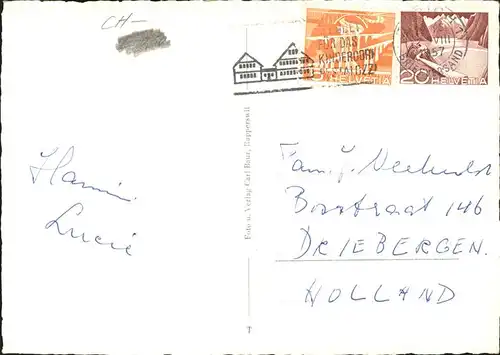 CH-
FÜR DAS
KINDERDORF
PESTALOZZI
HELVETIA
20 HELVETIA
VIII
1957
Hanni
Lucie
Foto u. Verlag Carl Baur, Rapperswil
Fam. J.
Bosstraat 146
DRIEBERGEN.
HOLLAND
T